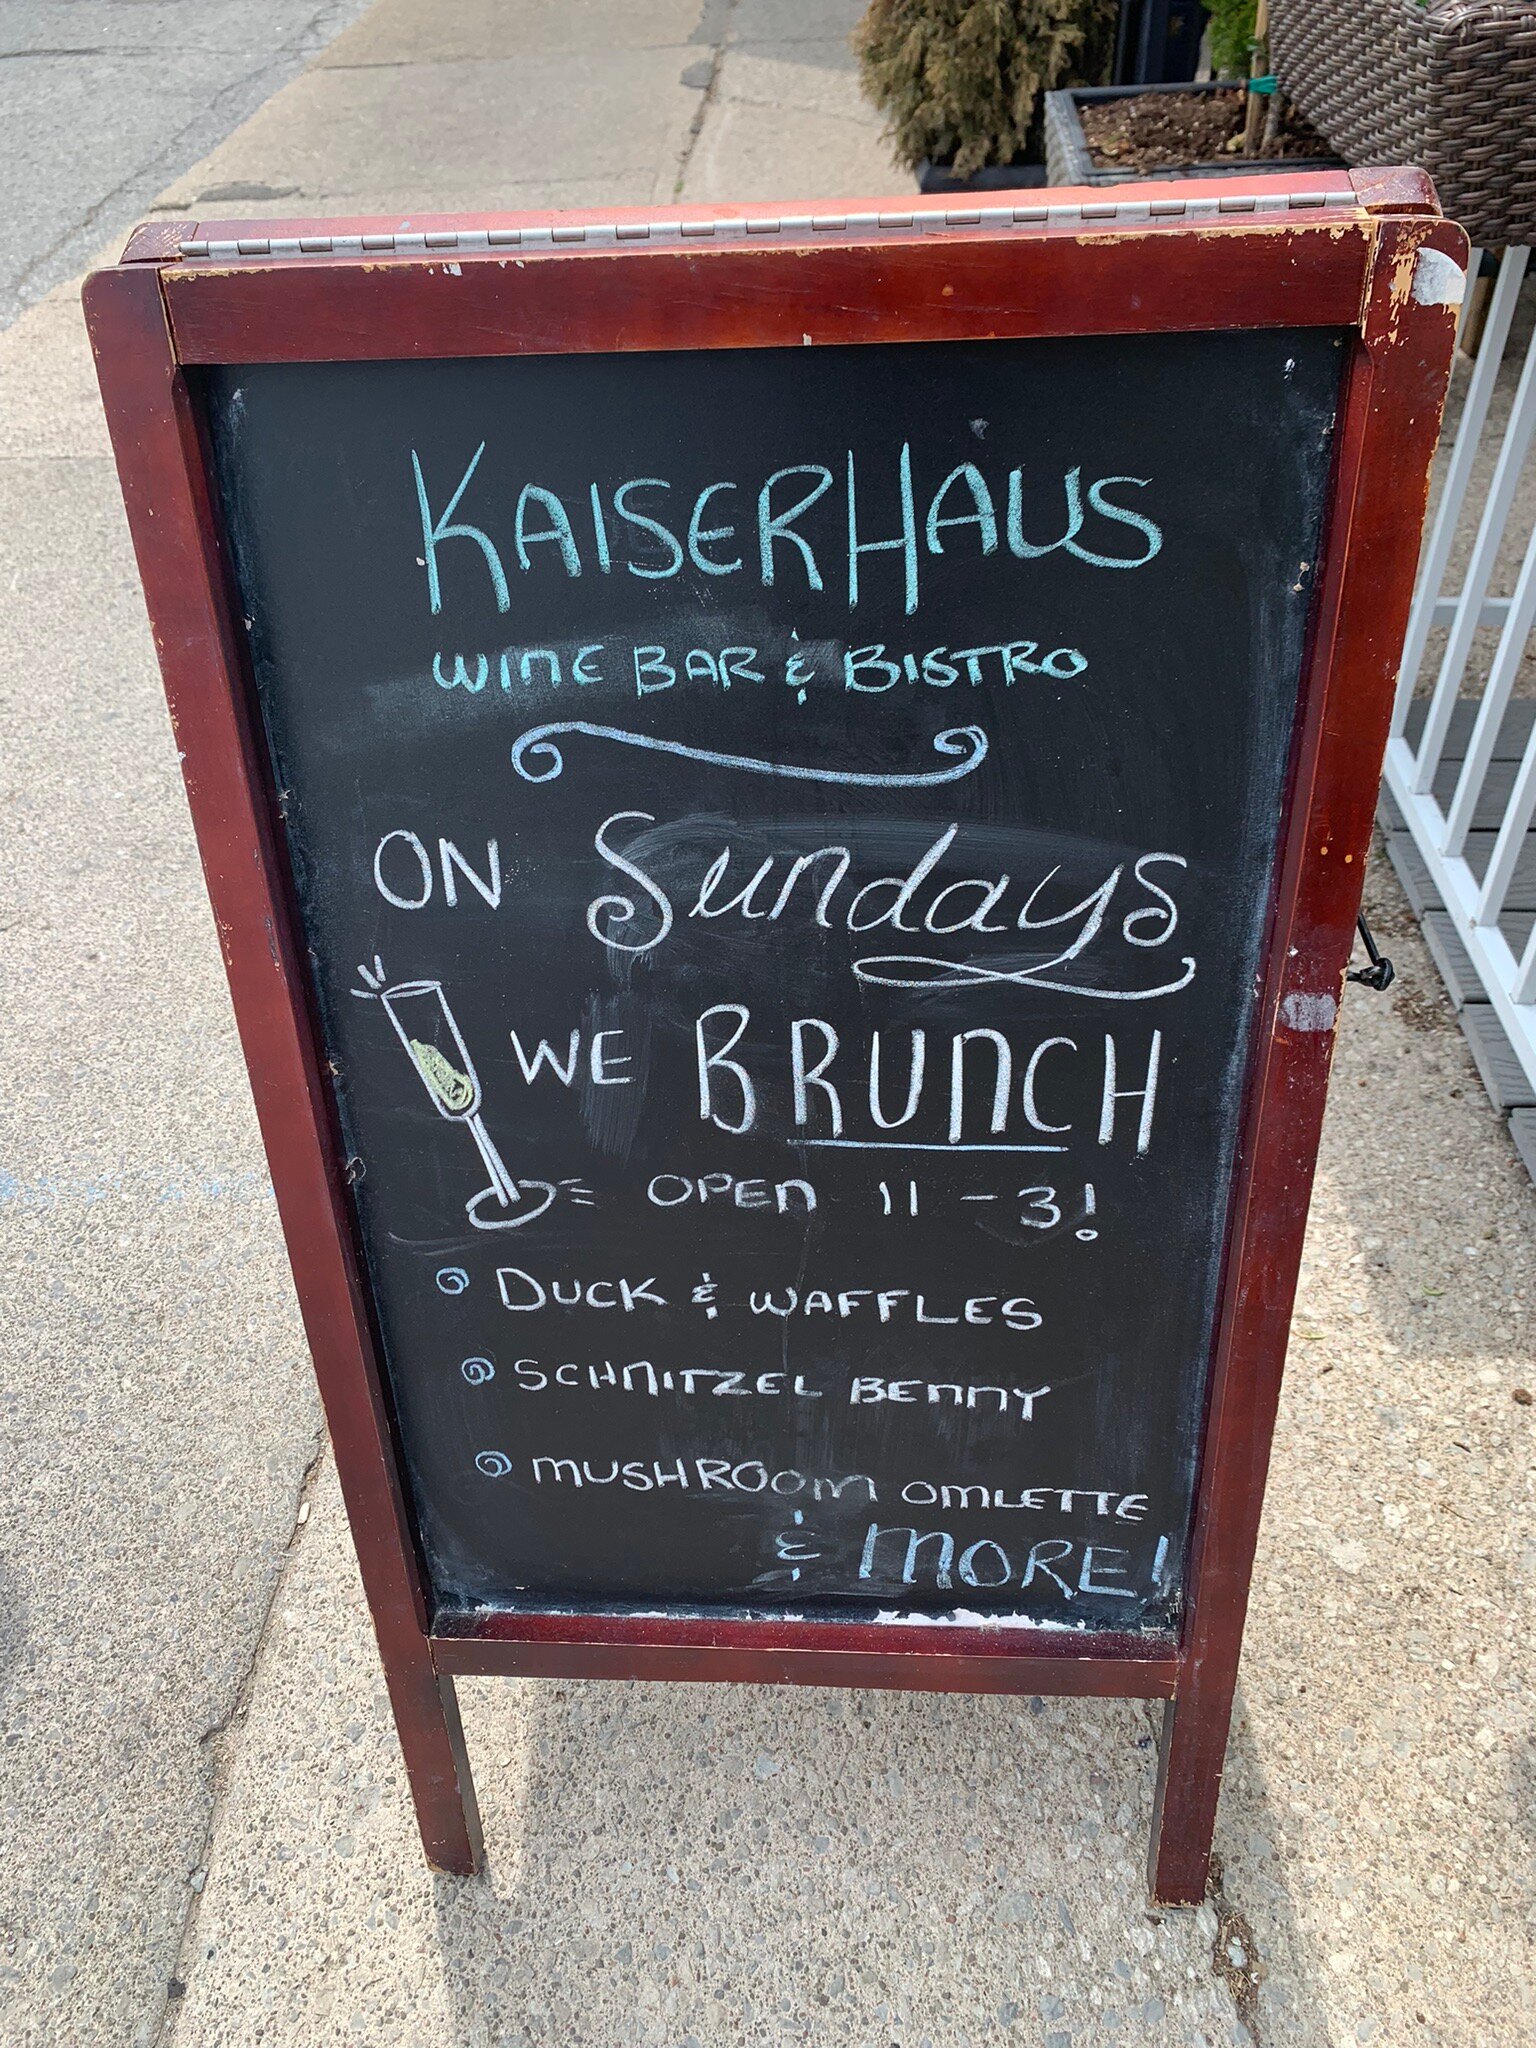 KAISERHAUS
WINE BAR & BISTRO
ON Sundays
WE BRUNCH
OPEN 11 - 3!
DUCK & WAFFLES
SCHNITZEL BENNY
MUSHROOM OMLETTE
& MORE!